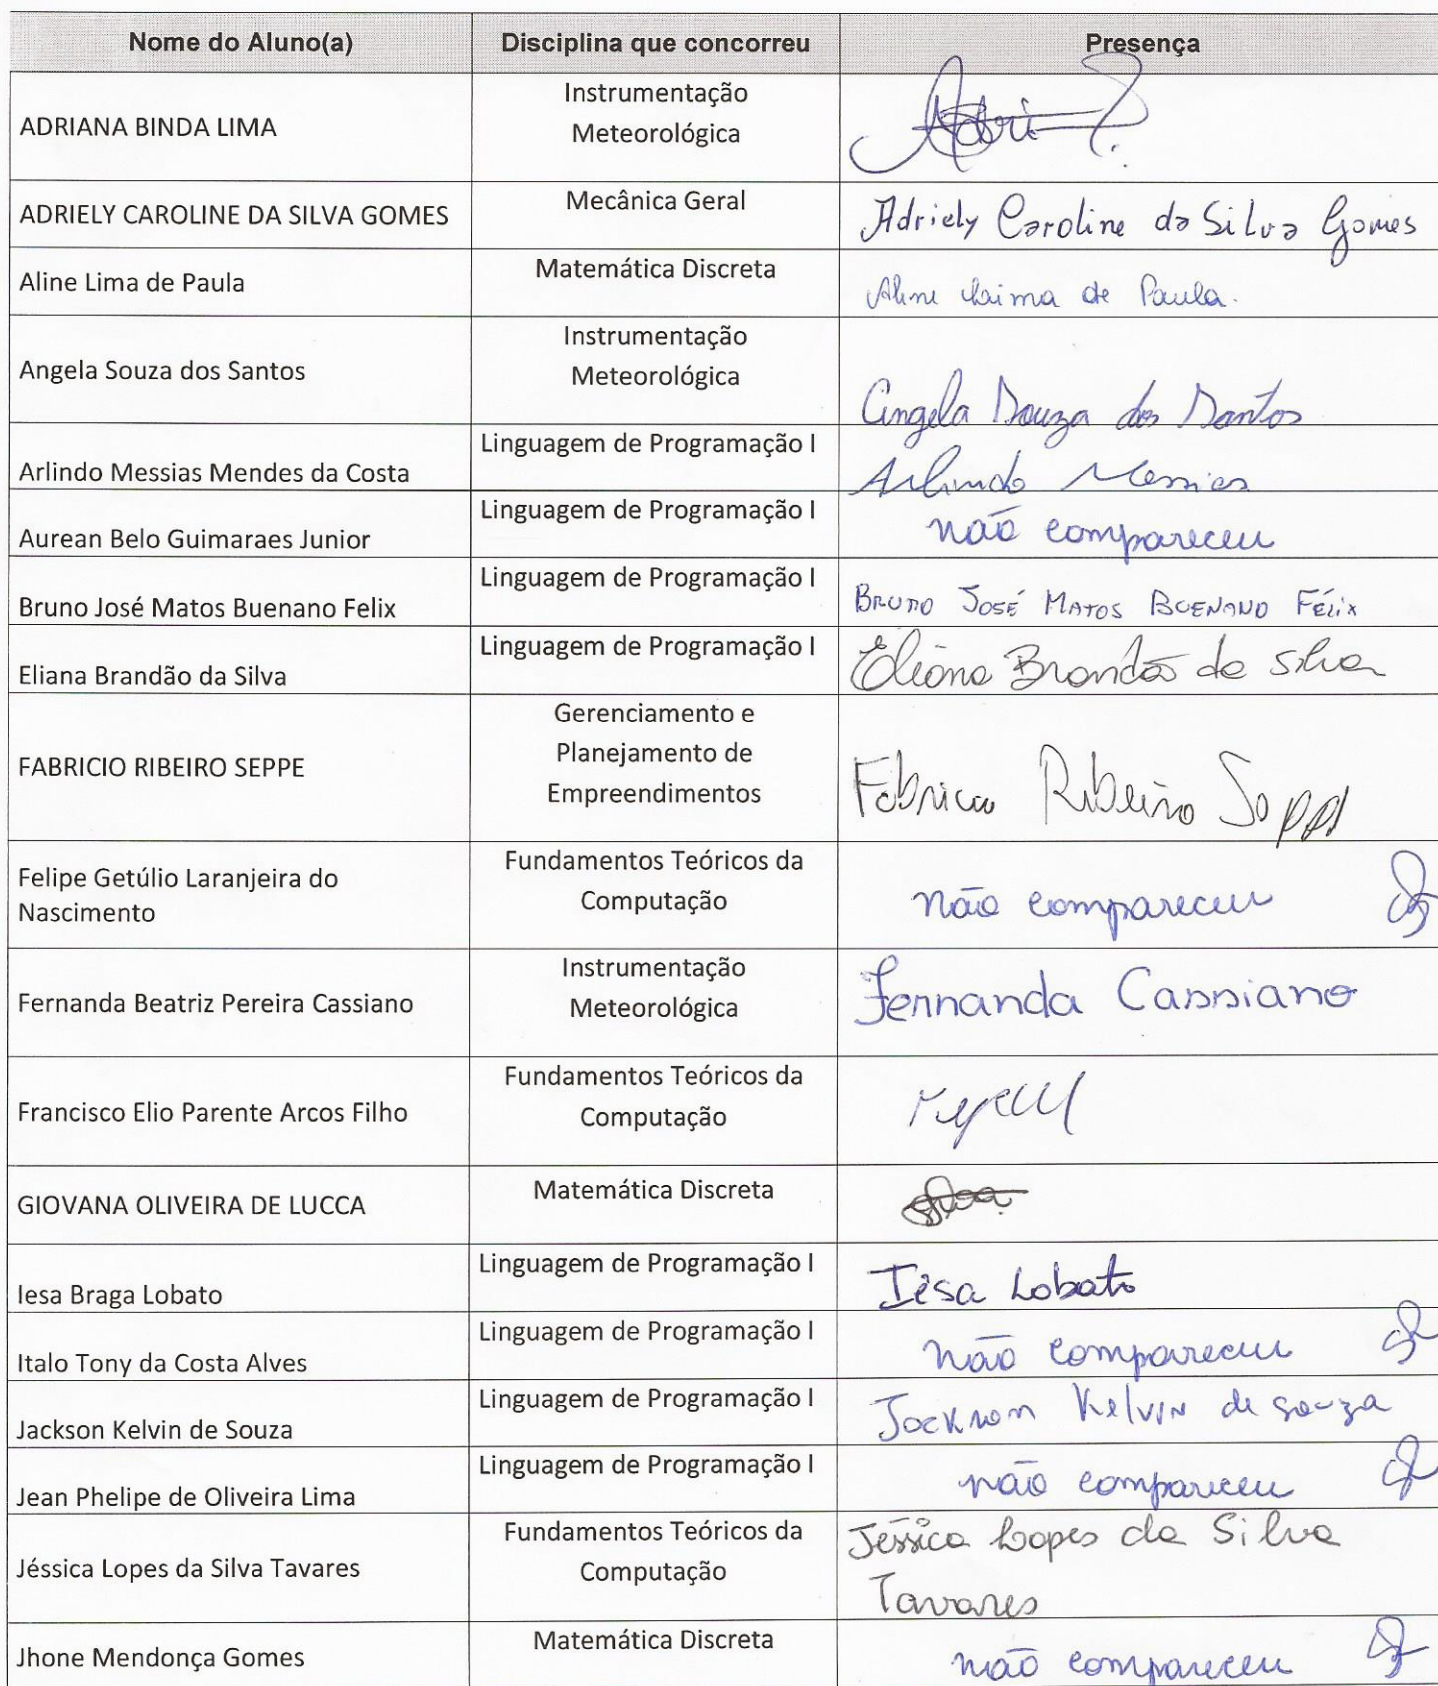 Nome do Aluno(a) Disciplina que concorreu Presença
ADRIANA BINDA LIMA Instrumentação
Meteorológica
ADRIELY CAROLINE DA SILVA GOMES Mecânica Geral Adriely Caroline da Silva Gomes
Aline Lima de Paula Matemática Discreta Aline Lima de Paula.
Angela Souza dos Santos Instrumentação
Meteorológica Angela Souza dos Santos
Arlindo Messias Mendes da Costa Linguagem de Programação I Arlindo Messias
Aurean Belo Guimaraes Junior Linguagem de Programação I não compareceu
Bruno José Matos Buenano Felix Linguagem de Programação I BRUNO JOSÉ MATOS BUENANO FÉLIX
Eliana Brandão da Silva Linguagem de Programação I Eliana Brandão da Silva
FABRICIO RIBEIRO SEPPE Gerenciamento e
Planejamento de
Empreendimentos Fabricio Ribeiro
Felipe Getúlio Laranjeira do
Nascimento Fundamentos Teóricos da
Computação não compareceu
Fernanda Beatriz Pereira Cassiano Instrumentação
Meteorológica Fernanda Cassiano
Francisco Elio Parente Arcos Filho Fundamentos Teóricos da
Computação
GIOVANA OLIVEIRA DE LUCCA Matemática Discreta
Iesa Braga Lobato Linguagem de Programação I Iêsa Lobato
Italo Tony da Costa Alves Linguagem de Programação I não compareceu
Jackson Kelvin de Souza Linguagem de Programação I Jackson Kelvin de Souza
Jean Phelipe de Oliveira Lima Linguagem de Programação I não compareceu
Jéssica Lopes da Silva Tavares Fundamentos Teóricos da
Computação Jéssica Lopes da Silva
Tavares
Jhone Mendonça Gomes Matemática Discreta não compareceu